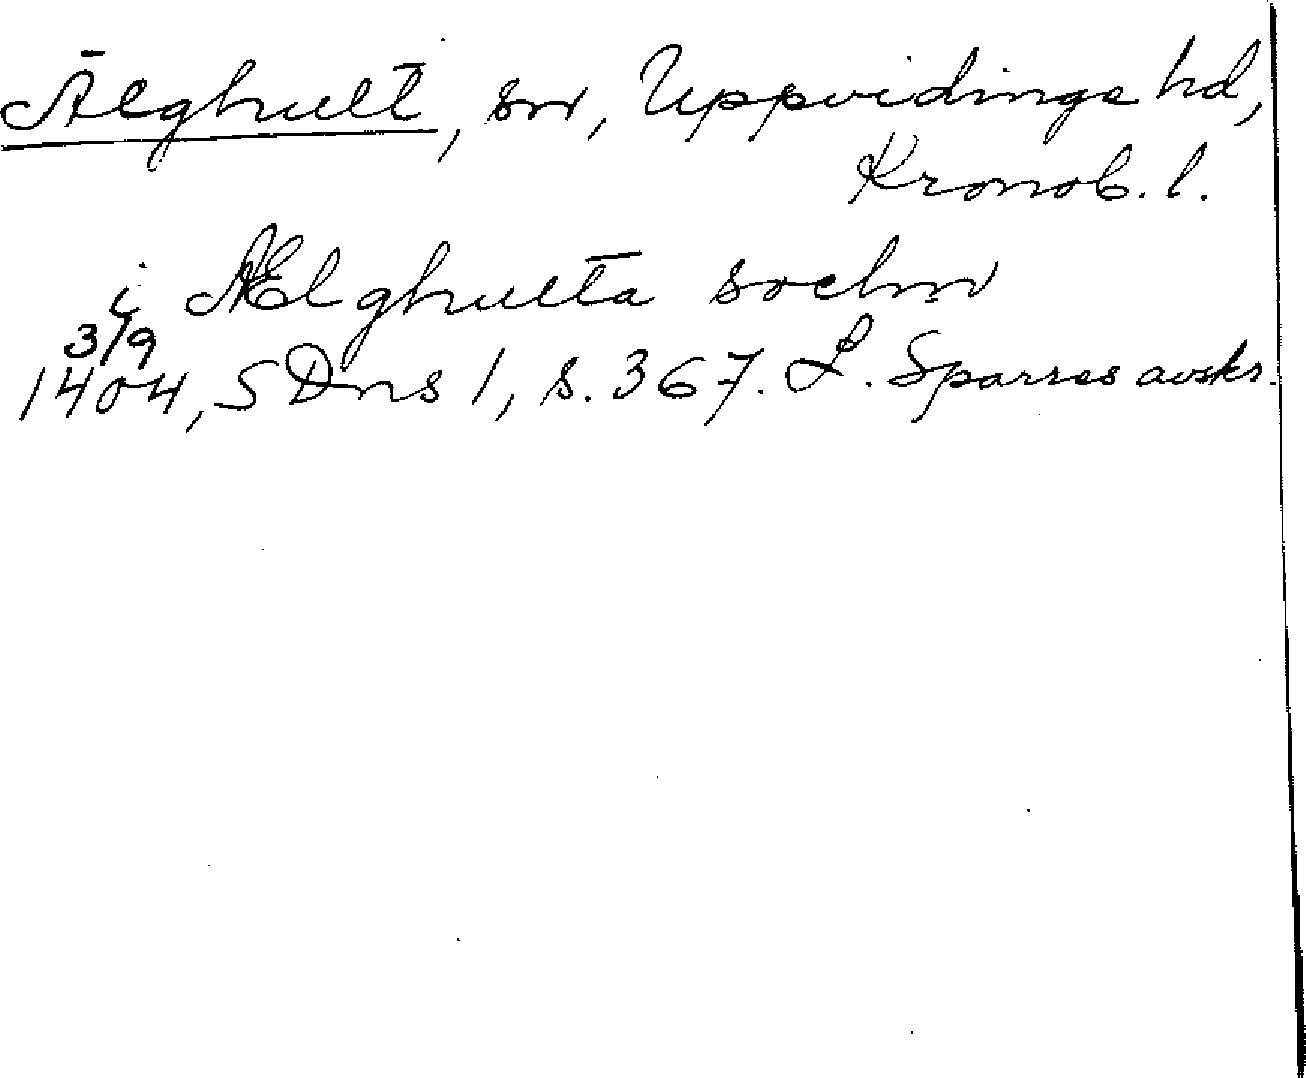 Älghult, sn, Uppvidinge hd,
Kronob. l.
i Ælghulta sochn
3/9
1404, SDns 1, s. 367. L. Sparres avskr.